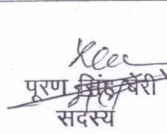 पूरण सिंह बेरी
सदस्य